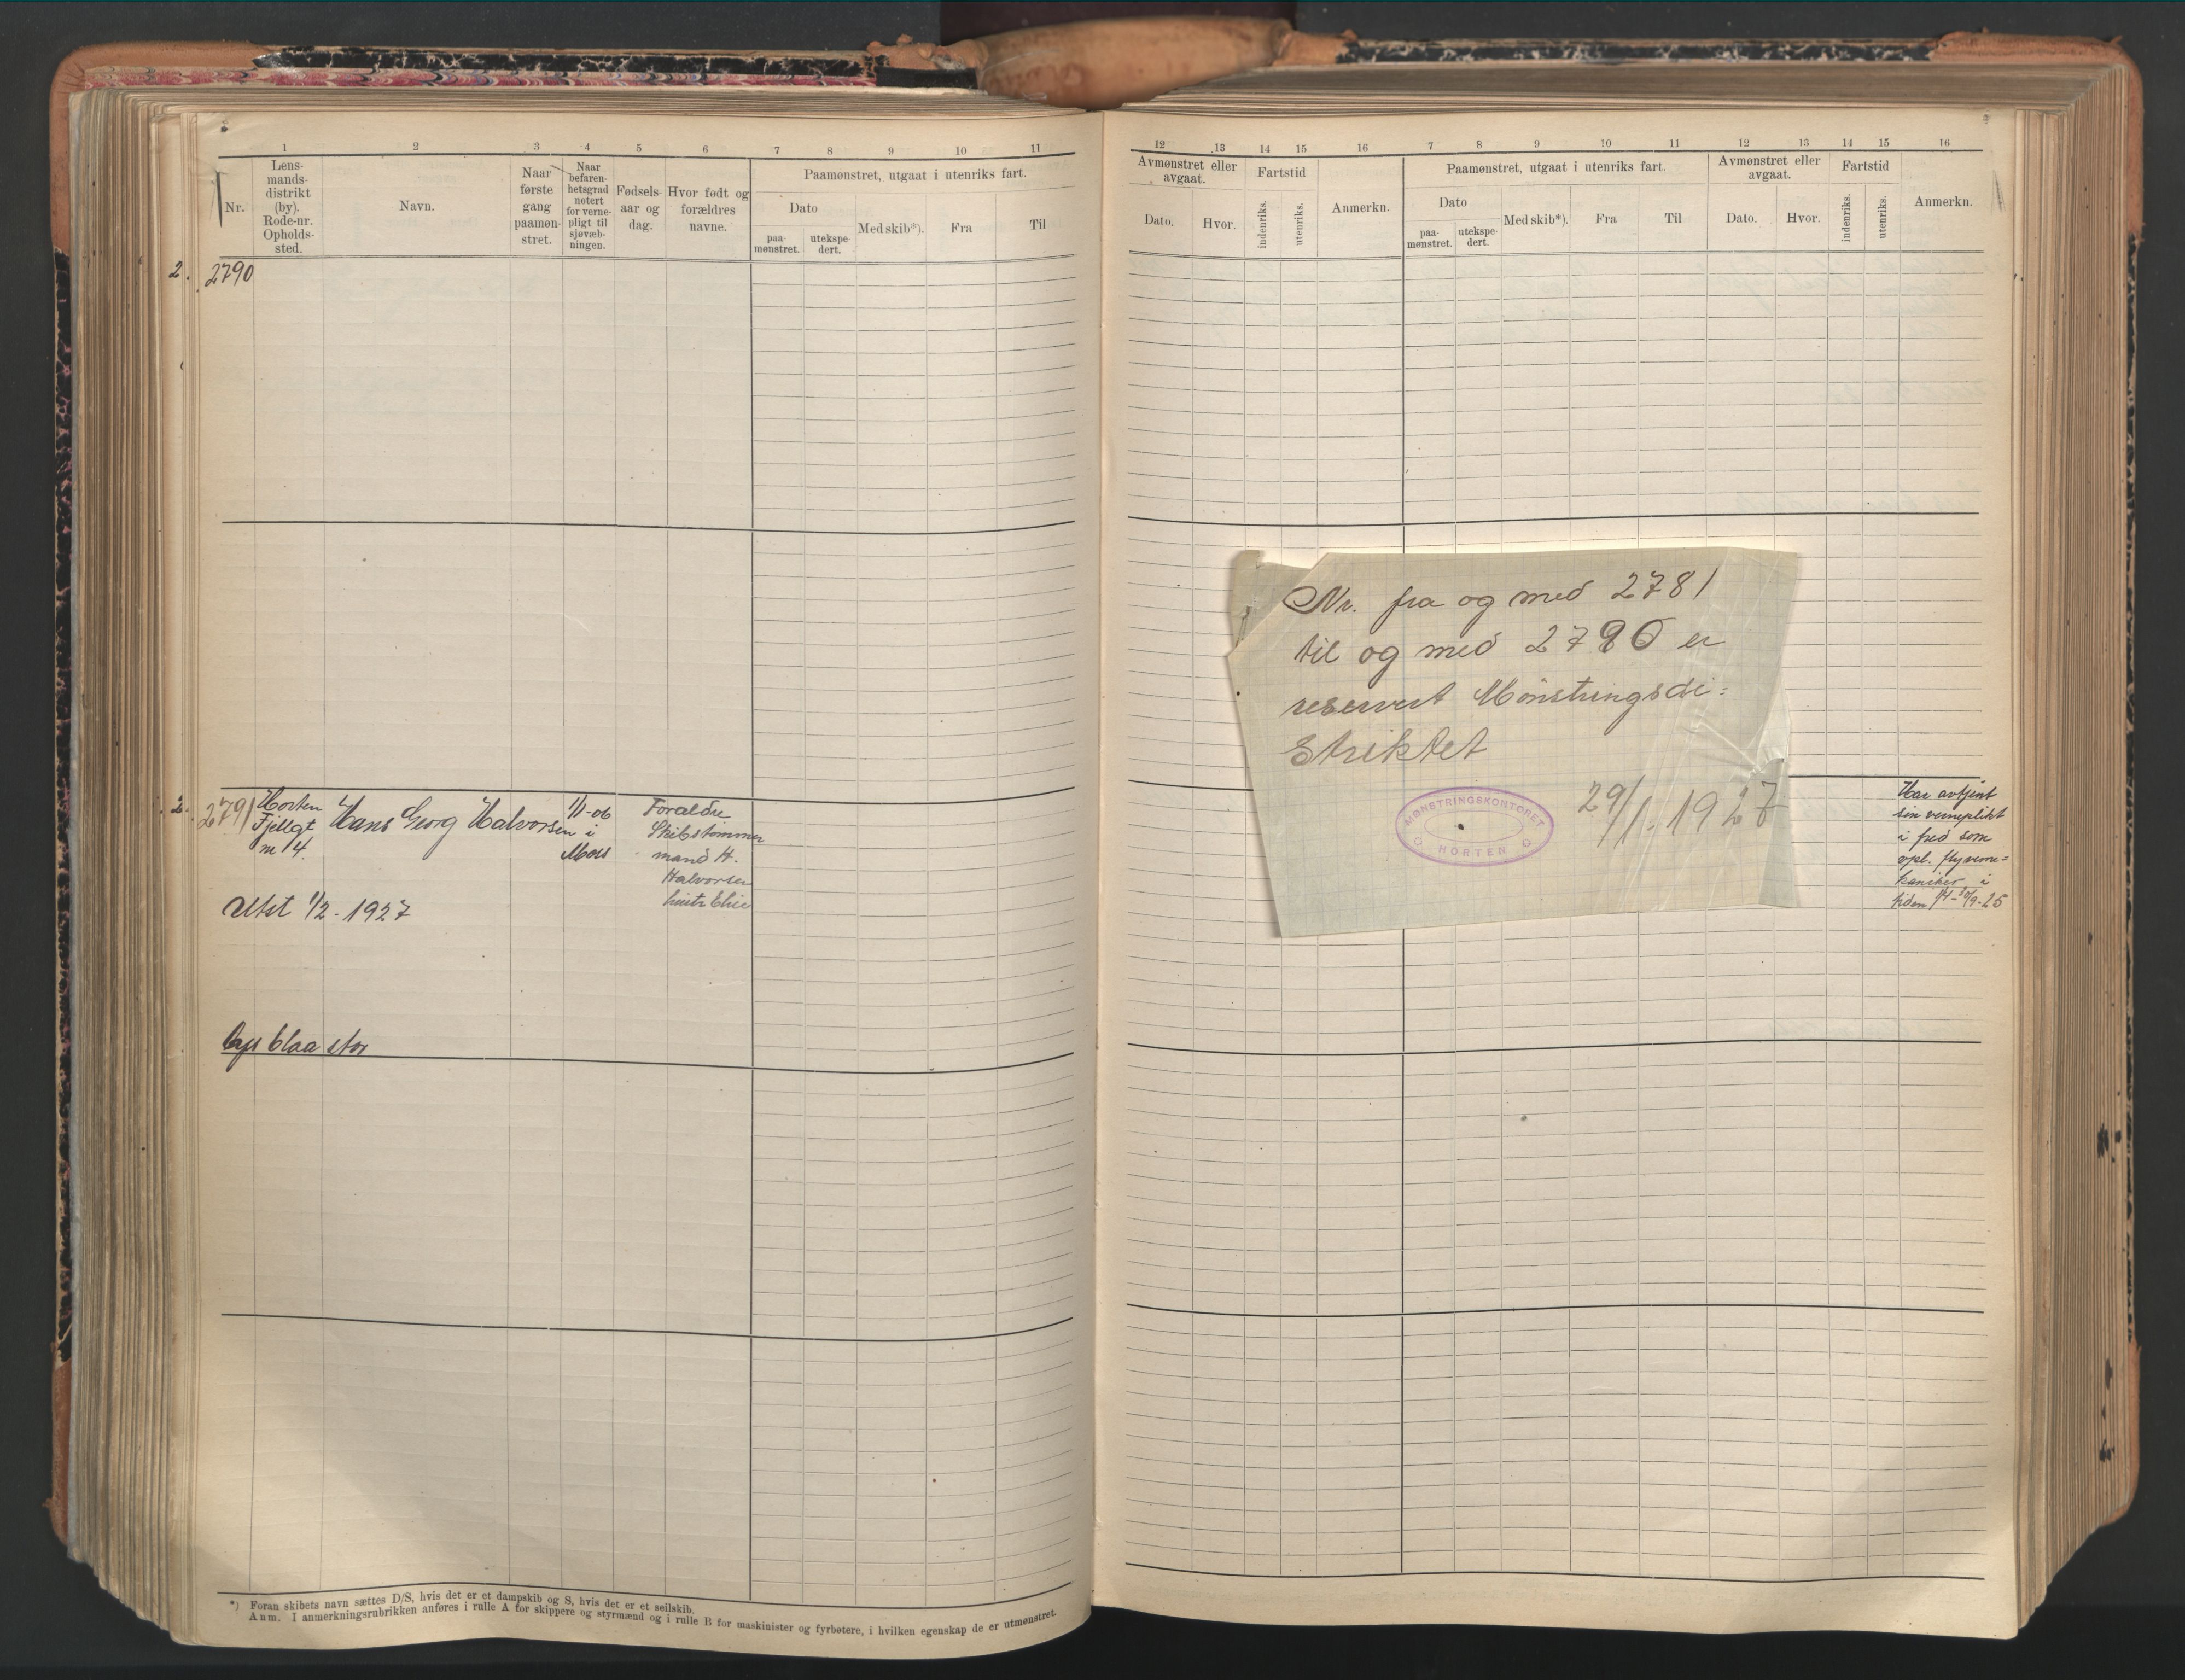 1 2 3 4 5 6 7 8 9 10 11
Nr.
Lens-
mands-
distrikt
(by).
Rode-nr.
Opholds-
sted.
Navn.
Naar
første
gang
paamøn-
stret.
Naar
befaren-
hetsgrad
notert
for verne-
pligt til
sjøvæb-
ningen.
Fødsels-
aar og
dag.
Hvor født og
forældres
navne.
Paamønstret, utgaat i utenriks fart.
Dato
paa-
mønstret.
utekspe-
dert.
Med skib*).
Fra
Til
2. 2790
2. 2791
Horten
Fjellgt
nr 14.
Hans Georg Halvorsen
1/1-06
i
Moss
Foraldre
Skibstømmer
mand H.
Halvorsen
hustr
Utst 1/2 - 1927
blaa stor
*) Foran skibets navn sættes D/S, hvis det er et dampskib og S, hvis det er et seilskib.
Anm. I anmerkningsrubrikken anføres i rulle A for skippere og styrmænd og i rulle B for maskinister og fyrbøtere, i hvilken egenskap de er utmønstret.
12 13 14 15 16 7 8 9 10 11 12 13 14 15 16
Avmønstret eller
avgaat.
Dato.
Hvor.
Fartstid
indenriks.
utenriks.
Anmerkn.
Paamønstret, utgaat i utenriks fart.
Dato
paa-
mønstret.
utekspe-
dert.
Med skib*).
Fra
Til
Avmønstret eller
avgaat.
Dato.
Hvor.
Fartstid
indenriks.
utenriks.
Anmerkn.
Nr. fra og med 2781
til og med 2790 er
reservert Mönstringsdi=
striktet
29/1. 1927
MØNSTRINGSKONTORET
HORTEN
Har avtjent
sin verneplikt
i fred som
opl. flyveme=
kaniker i
tiden 1/4-30/9-25